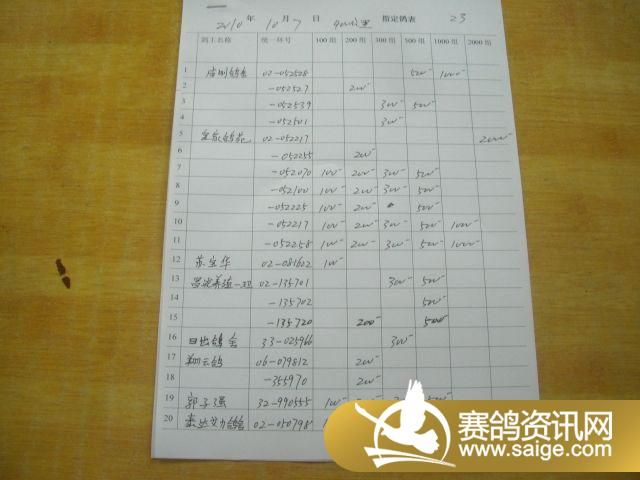 2010 年 10 月 7 日 指定鸽表 23
鸽主名称 统一环号 100 组 200 组 300 组 500 组 1000 组 2000 组
1 02-052528 500- 1000-
2 -052527 200-
3 -052539 300- 500-
4 -052501 300-
5 皇家鸽苑 02-052217 2000-
6 -052255 200-
7 -052070 100- 200- 300- 500-
8 -052100 100- 200- 300- 500-
9 -052225 100- 200- 500-
10 -052217 100- 200- 300- 500- 1000-
11 -052258 100- 200- 300- 500- 1000-
12 苏宝华 02-081622 100-
13 02-135701 300- 500-
14 -135702 500-
15 -135720 200- 500-
16 33-025966 300-
17 翔云鸽 06-079812 200-
18 -355970 200-
19 郭子强 32-990555
20 泰达艾力鸽舍 02-050798
赛鸽资讯网
www.saige.com